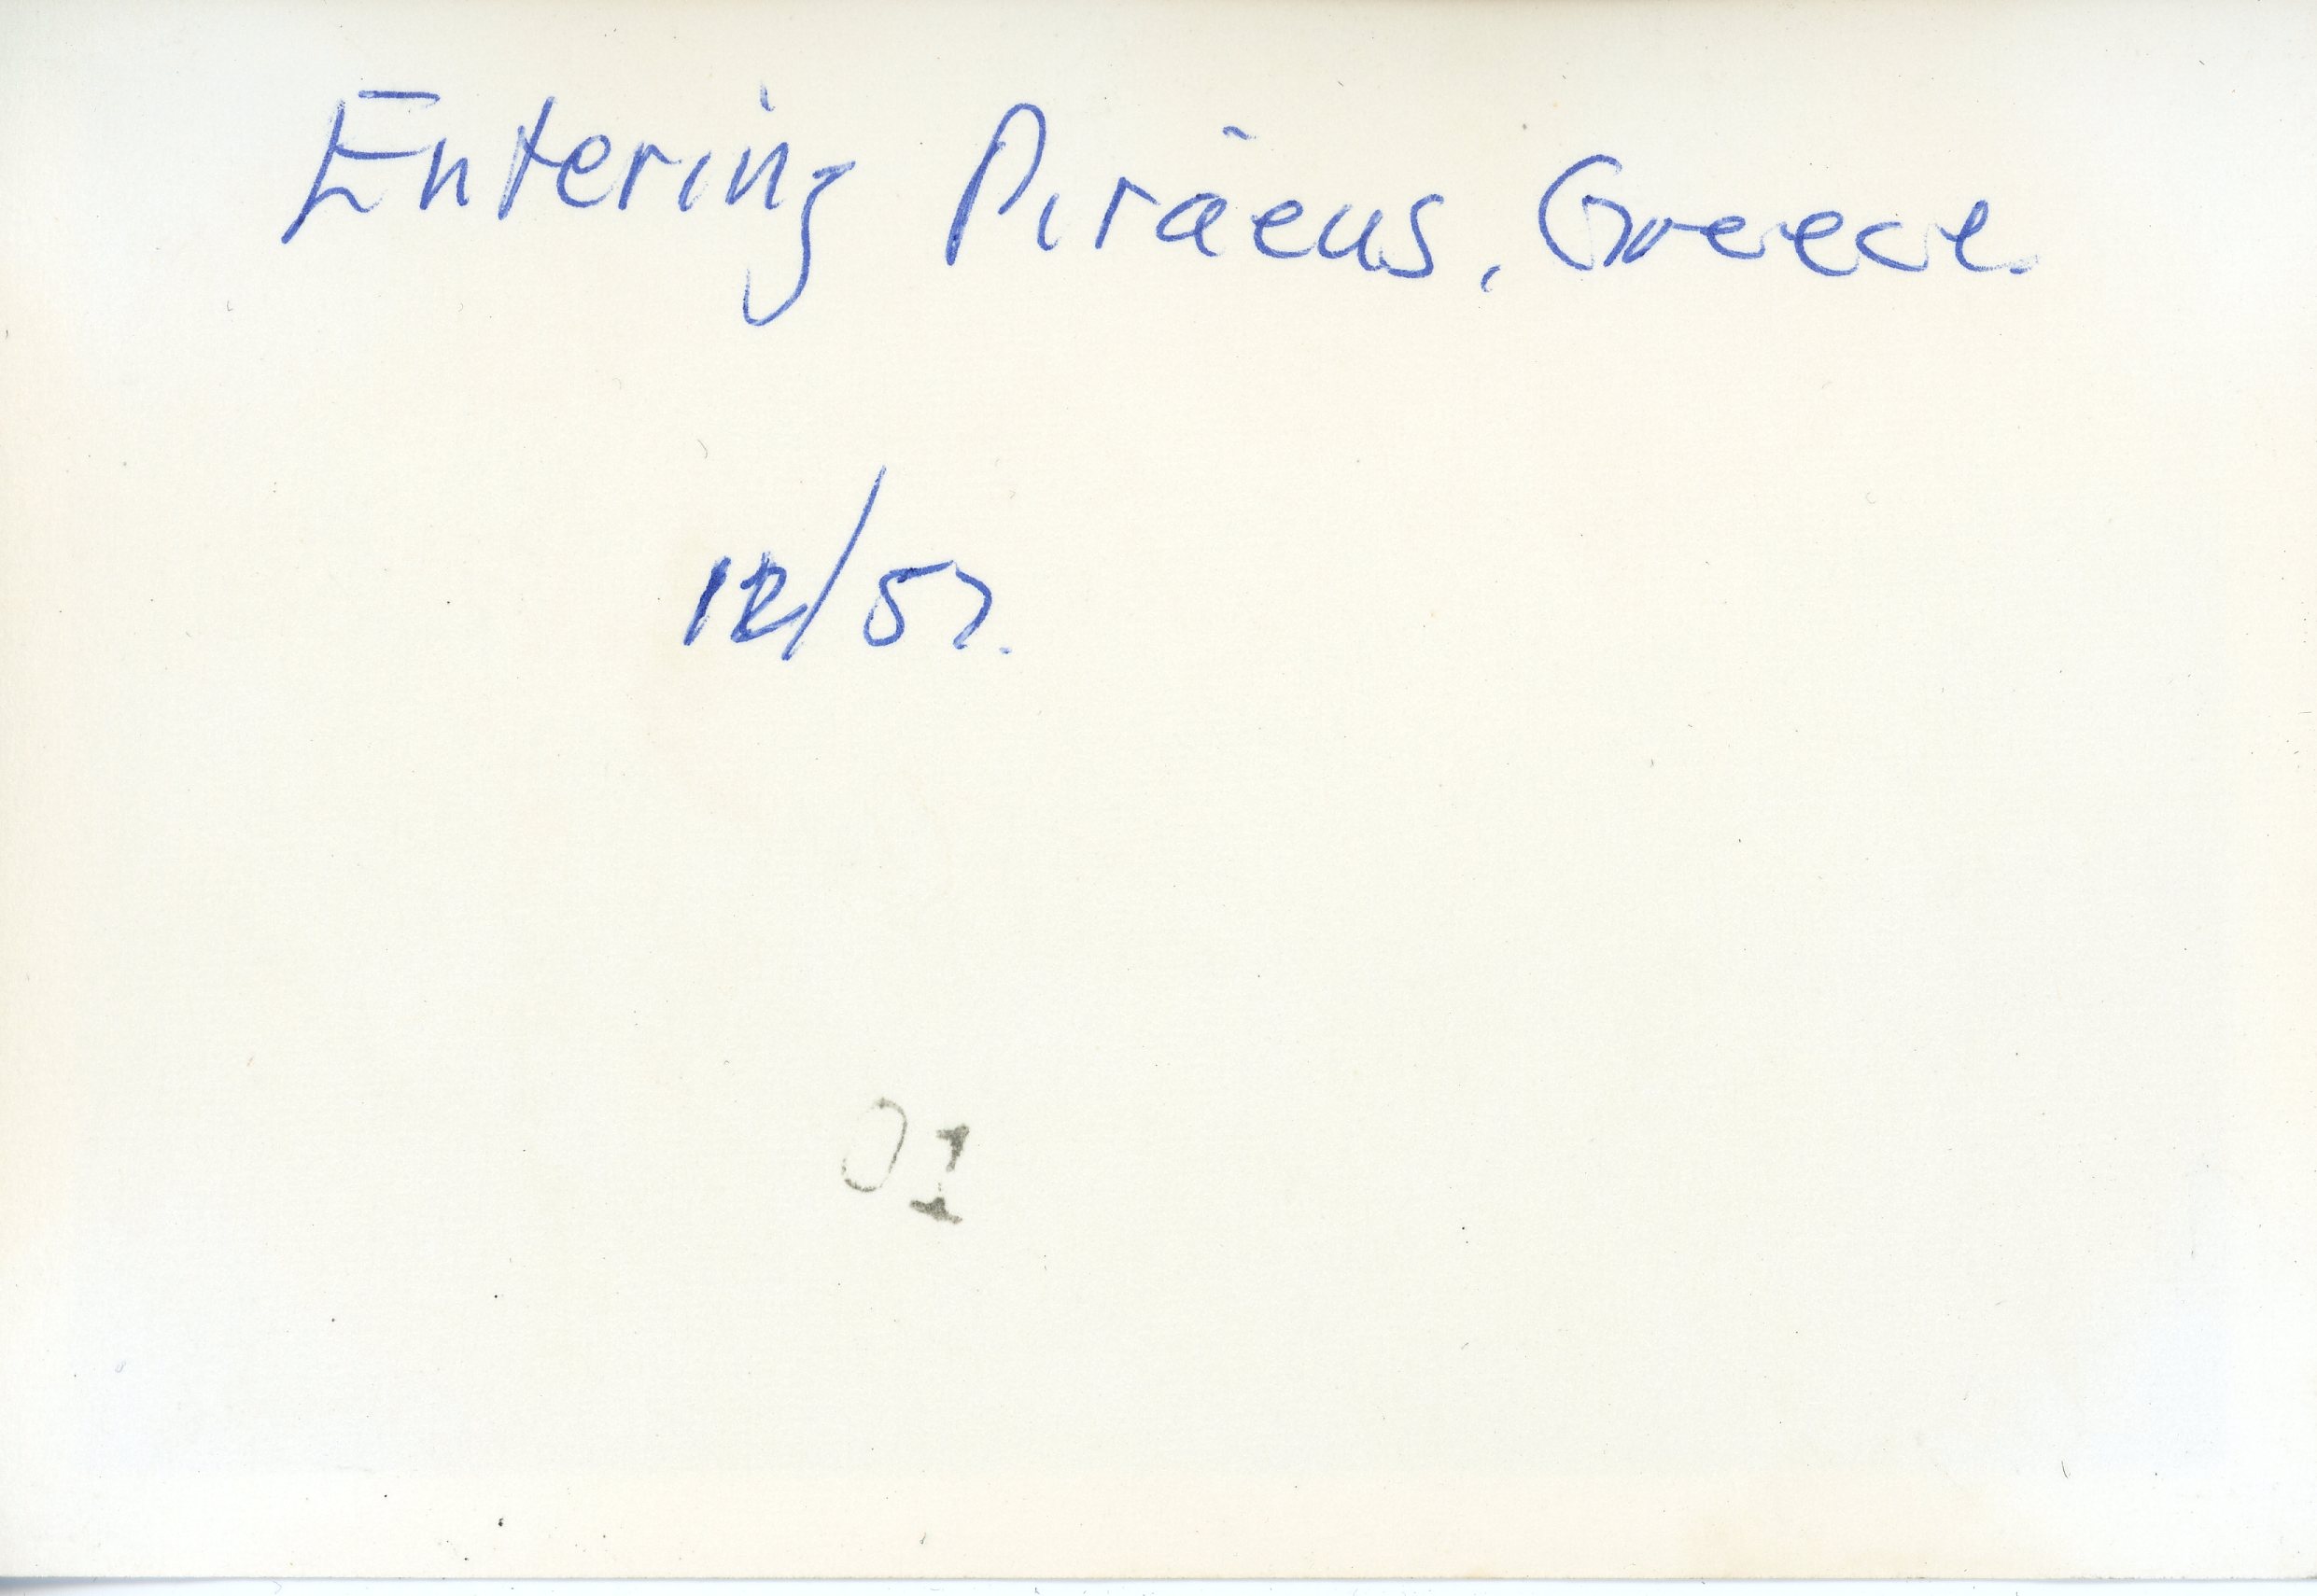 Entering Piraeus, Greece.
12/57.
01